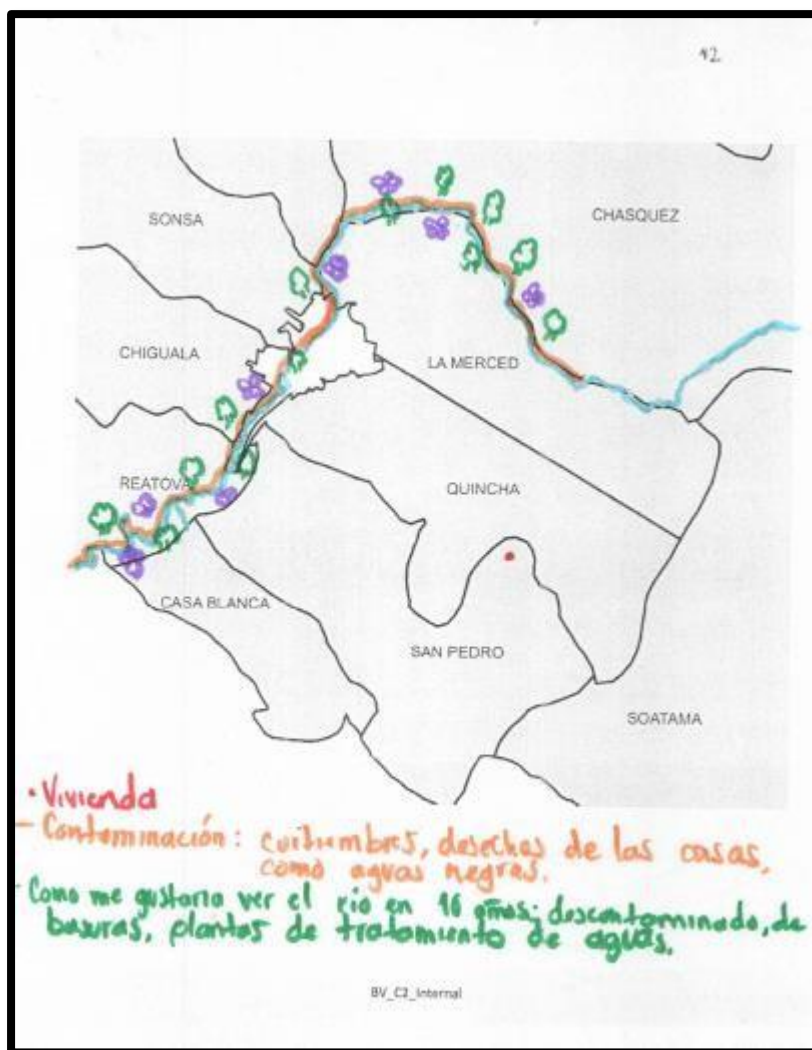 42
SONSA
CHASQUEZ
CHIGUALA
LA MERCED
REATOVA
QUINCHA
CASA BLANCA
SAN PEDRO
SOATAMA
• Vivienda
- Contaminación: curtiumbres, desechos de las casas,
como aguas negras.
- Como me gustaria ver el rio en 10 años; descontaminado, de
basuras, plantas de tratamiento de aguas.
BV_C2_Internal